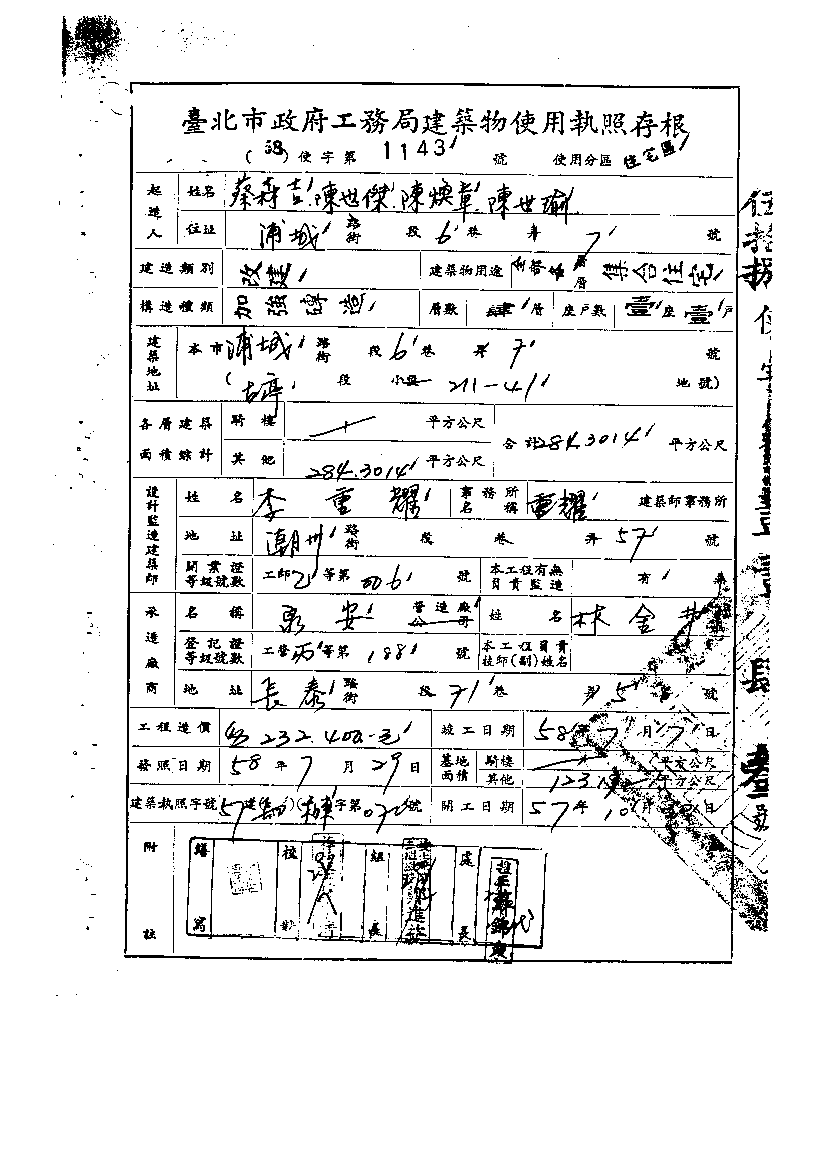 臺北市政府工務局建築物使用執照存根
(58)使字第1143號 使用分區 住宅區
起造人 姓名 蔡森吉 陳世傑 陳煥章 陳世瑜
住址 浦城 路街 段 6 巷 弄 7 號
建造類別 改建 建築物用途 全部 各層 集合住宅
構造種類 加強磚造 層數 肆層 座戶數 壹座壹戶
建築地址 本市 浦城 路街 段 6 巷 弄 7 號
(古亭 段 小段 211-41 地號)
各層建築面積綜計 騎樓 平方公尺 合計 284.3014 平方公尺
其他 284.3014 平方公尺
設計監造建築師 姓名 李重耀 事務所名稱 重耀 建築師事務所
地址 潮州 路街 段 巷 弄 57 號
開業證等級號數 工師乙等第 006 號 本工程有無負責監造 有
承造廠商 名稱 泉安 營造廠公司 姓名 林金
登記證等級號數 工營丙等第 1881 號 本工程負責技師(副)姓名
地址 長泰 路街 段 71 巷 弄 5 號
工程造價 232.400.元 竣工日期 58年7月7日
發照日期 58年7月29日 基地面積 騎樓 平方公尺
其他 123 平方公尺
建築執照字號 57建( )( )字第070號 開工日期 57年10月 日
附註 繕寫 校對 組長 處長 代
伍拾捌使字